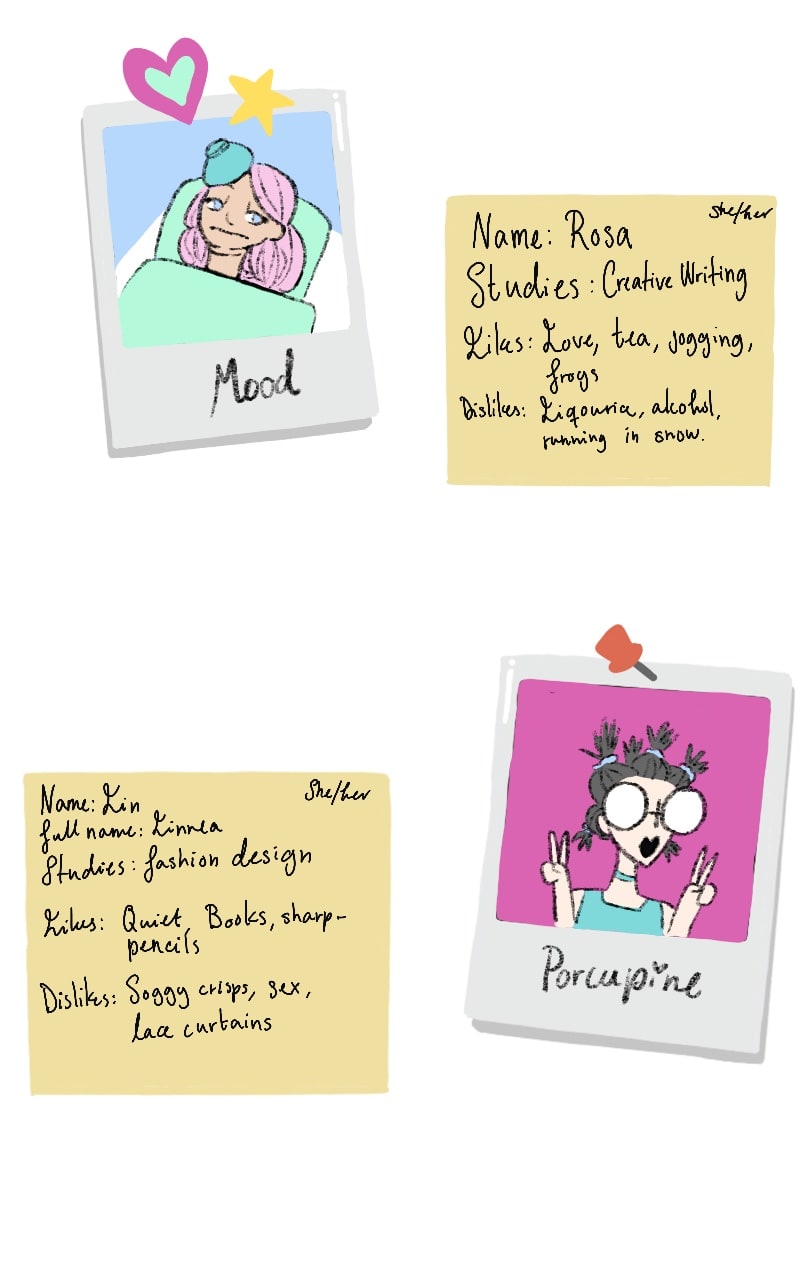 Mood
she/her
Name: Rosa
Studies: Creative Writing
Likes: Love, tea, jogging,
frogs
Dislikes: Liqourice, alcohol,
running in snow.
She/her
Name: Lin
full name: Linnea
Studies: fashion design
Likes: Quiet, Books, sharp-
pencils
Dislikes: Soggy crisps, sex,
lace curtains
Porcupine